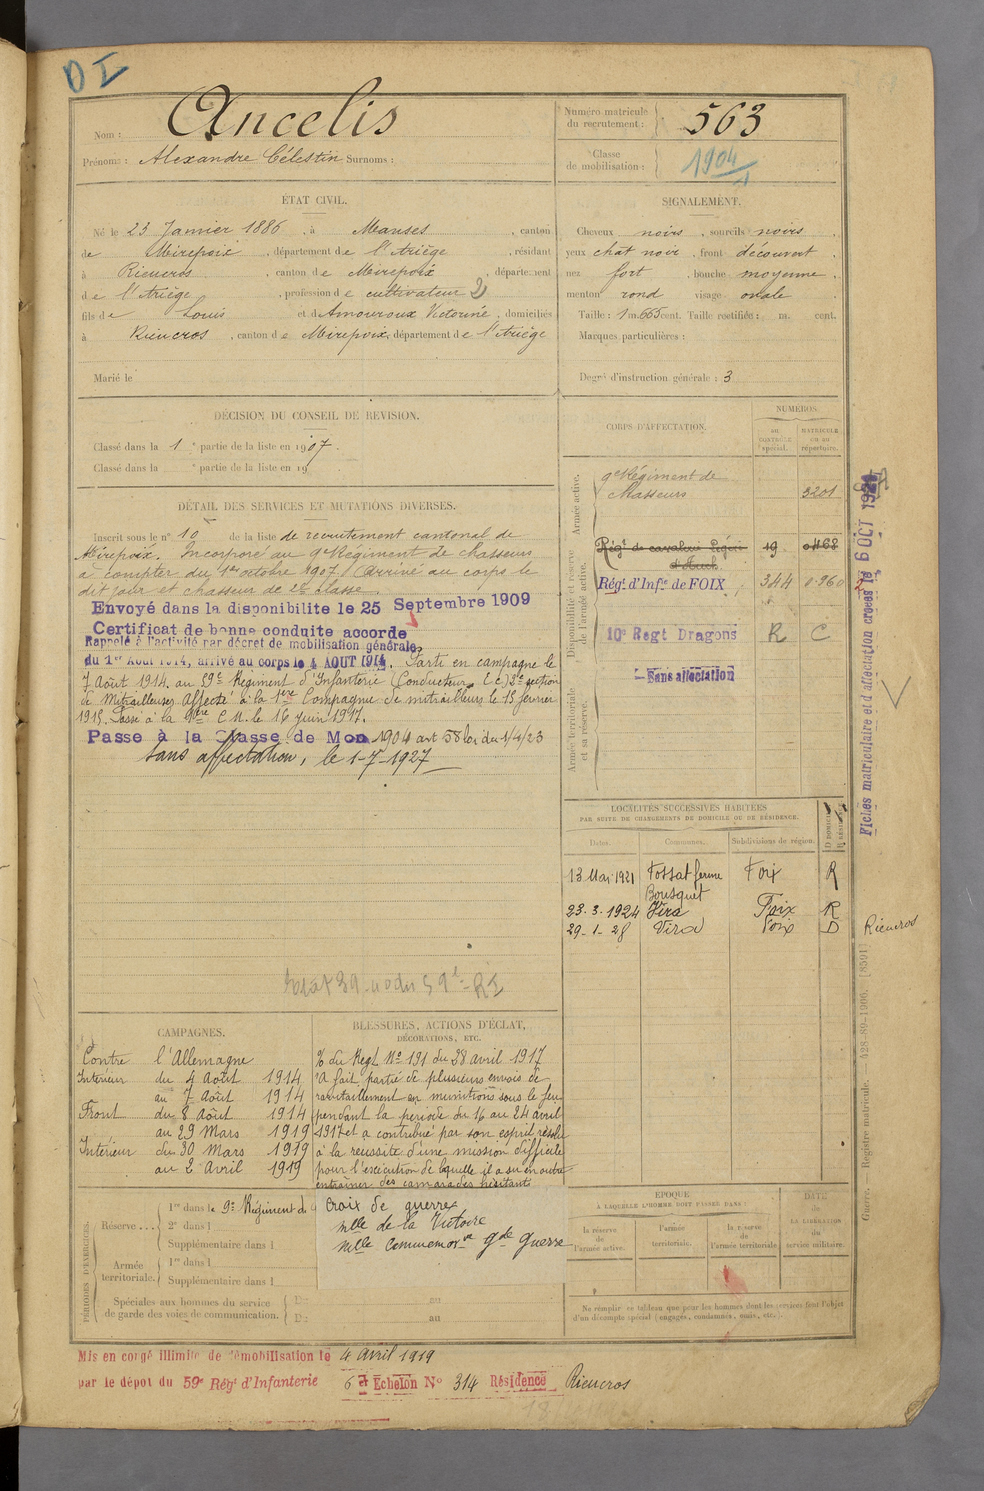 D I
Nom : Ancelis
Prénoms : Alexandre Célestin Surnoms :
Numéro matricule du recrutement : 563
Classe de mobilisation : 1904
ÉTAT CIVIL.
Né le 23 Janvier 1886, à Manses, canton
de Mirepoix, département de l'Ariège, résidant
à Rieucros, canton de Mirepoix, département
de l'Ariège, profession de cultivateur 2
fils de Louis et de Amouroux Victorine, domiciliés
à Rieucros, canton de Mirepoix, département de l'Ariège
Marié le
SIGNALEMENT.
Cheveux noirs, sourcils noirs
yeux chat noir, front découvert
nez fort, bouche moyenne,
menton rond visage ovale
Taille : 1 m. 665 cent. Taille rectifiée : m. cent.
Marques particulières :
Degré d'instruction générale : 3
DÉCISION DU CONSEIL DE REVISION.
Classé dans la 1e partie de la liste en 1907.
Classé dans la e partie de la liste en 19
DÉTAIL DES SERVICES ET MUTATIONS DIVERSES.
Inscrit sous le n° 10 de la liste de recrutement cantonal de
Mirepoix. Incorporé au 9e Régiment de Chasseurs
à compter du 1er octobre 1907. Arrivé au corps le
dit jour et chasseur de 2e classe.
Envoyé dans la disponibilite le 25 Septembre 1909
Certificat de bonne conduite accorde
Rappelé à l'activité par décret de mobilisation générale
du 1er Aout 1914, arrivé au corps le 4 AOUT 1914. Parti en campagne le
7 Août 1914 au 59e Régiment d'Infanterie (Conducteur E.C.) 3e section
de Mitrailleuses. Affecté à la 1ère Compagnie de mitrailleurs le 15 février
1915. Passé à la C M. le 16 juin 1917.
Passe à la Classe de Mon 1904 art 58 loi du 1/4/23
sans affectation, le 1-7-1927
59e RI
CORPS D'AFFECTATION.
NUMÉROS
au CONTRÔLE spécial.
MATRICULE ou au répertoire.
Armée active.
9e Régiment de
Chasseurs 3201
Disponibilité et réserve de l'armée active.
Régt de cavalerie légère 19 0468
d'Auch
Régt d'Infie de FOIX 344 0960
10e Regt Dragons R C
Sans affectation
Armée territoriale et sa réserve.
Fiches matriculaire et d'affectation créées le 6 OCT 192
LOCALITÉS SUCCESSIVES HABITÉES
PAR SUITE DE CHANGEMENTS DE DOMICILE OU DE RÉSIDENCE.
Dates. Communes. Subdivisions de région. D DOMICILE R RÉSIDENCE
13 Mai 1921 Fossat ferme Bousquet Foix R
23.3.1924 Vira Foix R
29-1-28 Vira Foix D Rieucros
CAMPAGNES.
Contre l'Allemagne
Intérieur du 4 Août 1914
au 7 Août 1914
Front du 8 Août 1914
au 29 Mars 1919
Intérieur du 30 Mars 1919
au 2 Avril 1919
BLESSURES, ACTIONS D'ÉCLAT,
DÉCORATIONS, ETC.
% du Regt No 191 du 28 avril 1917
"A fait partie de plusieurs envois de
ravitaillement en munitions sous le feu
pendant la période du 16 au 24 avril
1917 et a contribué par son esprit résolu
à la réussite d'une mission difficile
pour l'exécution de laquelle il a su en outre
entraîner des camarades hésitants
Croix de guerre
mlle de la Victoire
mlle commemorve gde guerre
PÉRIODES D'EXERCICES.
Réserve... 1re dans le 9e Régiment de
2e dans l
Supplémentaire dans l
Armée territoriale. 1re dans l
Supplémentaire dans l
Spéciales aux hommes du service
de garde des voies de communication.
Du au
Du au
ÉPOQUE
À LAQUELLE L'HOMME DOIT PASSER DANS :
la réserve de l'armée active.
l'armée territoriale.
la réserve de l'armée territoriale
DATE
de
LA LIBÉRATION
du
service militaire.
Ne remplir ce tableau que pour les hommes dont les services font l'objet
d'un décompte spécial (engagés, condamnés, omis, etc.).
Guerre. — Registre matricule. — 428-89-1906. [8591]
Mis en congé illimité de démobilisation le 4 avril 1919
par le dépot du 59e Régt d'Infanterie 6 e Echelon No 314 Résidence Rieucros